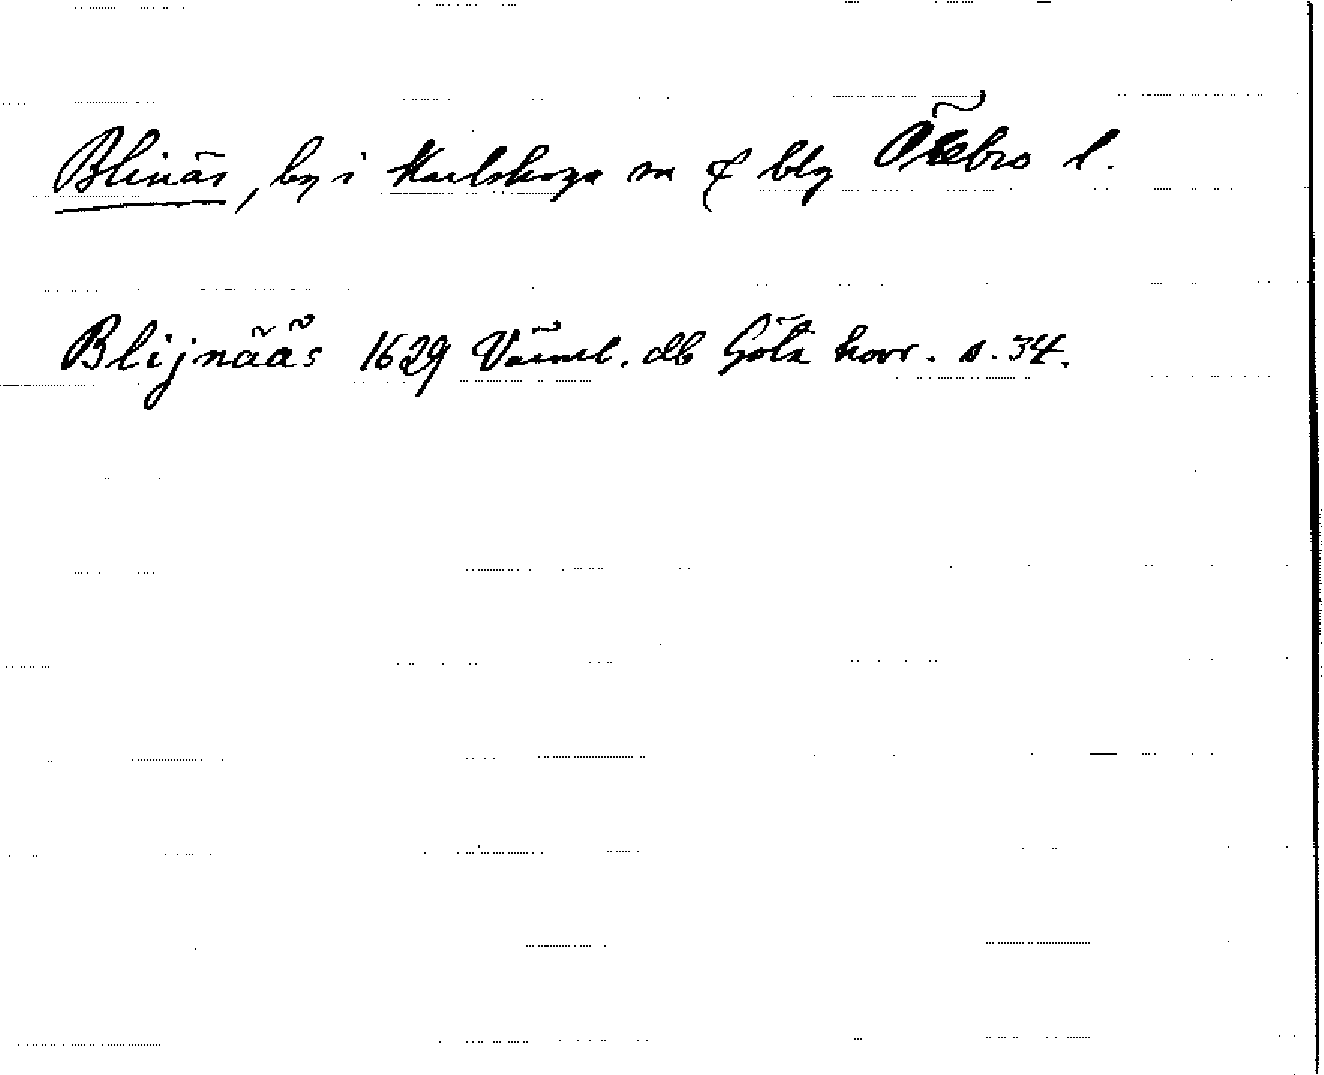 Blinäs, by i Karlskoga sn o blg Örebro l.
Blijnääs 1629 Värml. db Göta hovr. s. 34.